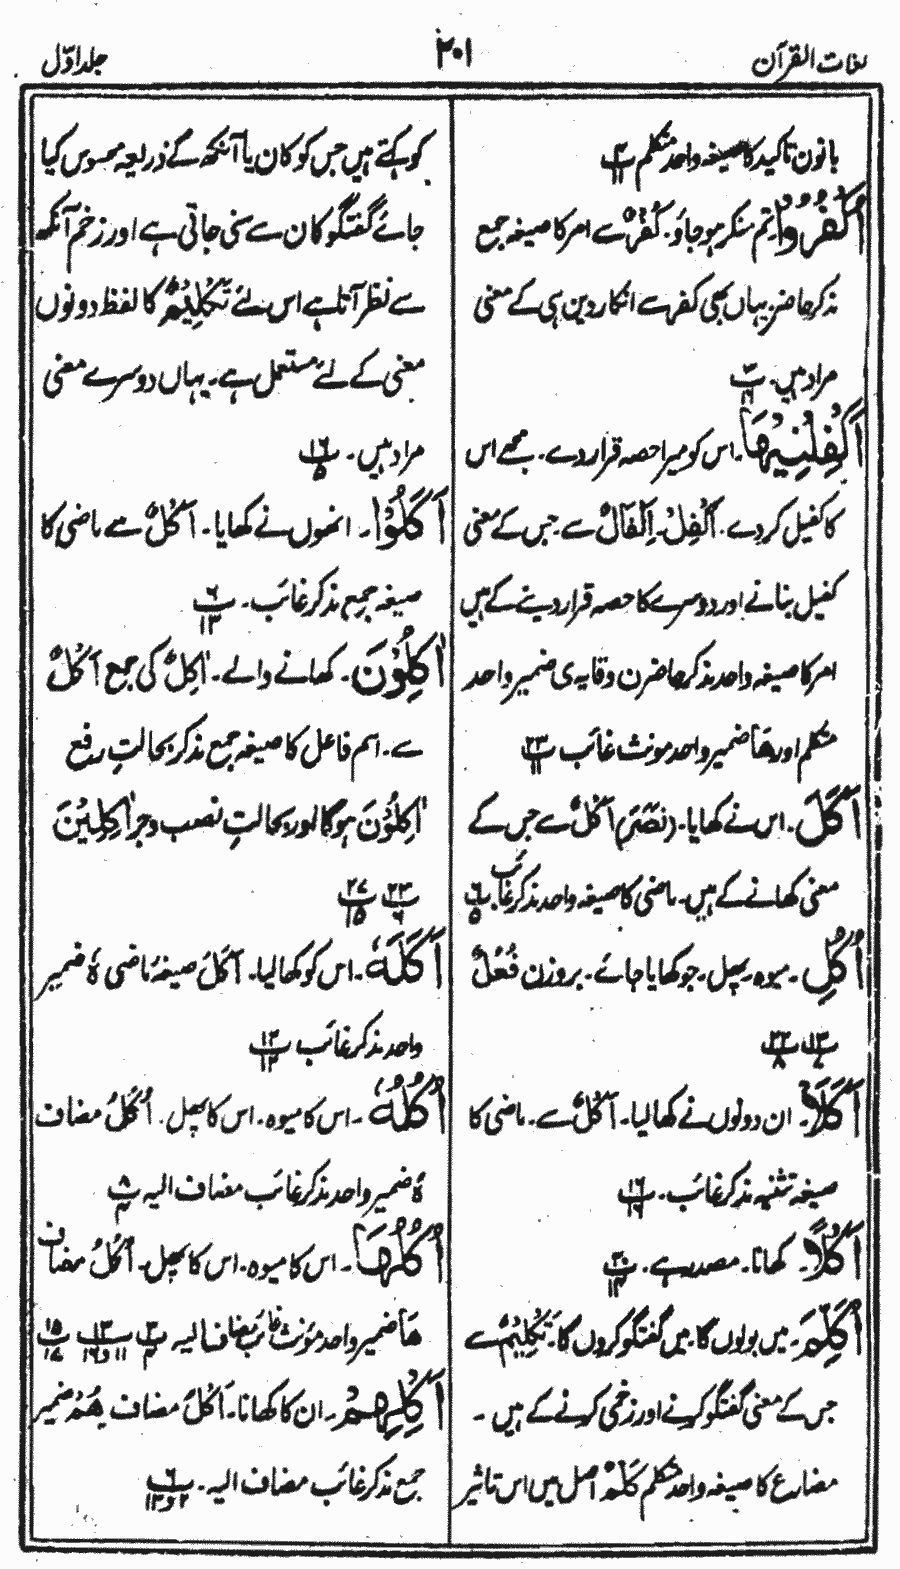 لغات القرآن
۲۰۱
جلد اوّل
بانون تاکید کا صیغہ واحد متکلم ۳/۱۱
اُکْفُرُوْا۔ تم منکر ہو جاؤ۔ کُفْرٌ سے امر کا صیغہ جمع
مذکر حاضر یہاں بھی کفر سے انکار دین ہی کے معنی
مراد ہیں۔
اَکْفِلْنِیْھَا۔ اس کو میرا حصہ قرار دے۔ مجھے اس
کا کفیل کر دے۔ اَکْفِلْ۔ اِکْفَالٌ سے۔ جس کے معنی
کفیل بنانے اور دوسرے کا حصہ قرار دینے کے ہیں
امر کا صیغہ واحد مذکر حاضر ن وقایہ ی ضمیر واحد
متکلم اور ھَا ضمیر واحد مونث غائب ۲۳/۱۱
اَکَلَ۔ اس نے کھایا۔ (نَصَرَ) اَکْلٌ سے جس کے
معنی کھانے کے ہیں۔ ماضی کا صیغہ واحد مذکر غائب۔ ۶/۵
اُکُلٍ۔ میوہ۔ پھل۔ جو کھایا جائے۔ بروزن فُعُلٌ
۱۳/۷ ۲۲/۸
اَکَلَا۔ ان دونوں نے کھا لیا۔ اَکْلٌ سے۔ ماضی کا
صیغہ تثنیہ مذکر غائب۔ ۱۶/۱۶
اَکْلًا۔ کھانا۔ مصدر ہے۔ ۳۰/۱۴
اُکَلِّمَ۔ میں بولوں گا۔ میں گفتگو کروں گا۔ تَکْلِیْمٌ سے
جس کے معنی گفتگو کرنے اور زخمی کرنے کے ہیں۔
مضارع کا صیغہ واحد متکلم کَلْمٌ اصل میں اس تاثیر
کو کہتے ہیں جس کو کان یا آنکھ کے ذریعہ محسوس کیا
جائے گفتگو کان سے سنی جاتی ہے اور زخم آنکھ
سے نظر آتا ہے اس لئے تَکْلِیْمٌ کا لفظ دونوں
معنی کے لئے مستعمل ہے۔ یہاں دوسرے معنی
مراد ہیں۔ ۱۶/۵
اَکَلُوْا۔ انھوں نے کھایا۔ اَکْلٌ سے ماضی کا
صیغہ جمع مذکر غائب۔ ۶/۱۳
اٰکِلُوْنَ۔ کھانے والے۔ اٰکِلٌ کی جمع اَکْلٌ
سے۔ اسم فاعل کا صیغہ جمع مذکر بحالتِ رفع
اٰکِلُوْنَ ہوگا اور بحالتِ نصب و جر اٰکِلِیْنَ
۲۳/۶ ۲۷/۱۵
اَکَلَہٗ۔ اس کو کھا لیا۔ اَکَلَ صیغۂ ماضی ہٗ ضمیر
واحد مذکر غائب ۱۲/۱۲
اُکُلُہٗ۔ اس کا میوہ۔ اس کا پھل۔ اُکُلُ مضاف
ہٗ ضمیر واحد مذکر غائب مضاف الیہ ۸/۴
اُکُلُھَا۔ اس کا میوہ۔ اس کا پھل۔ اُکُلُ مضاف
ھَا ضمیر واحد مؤنث غائب مضاف الیہ ۳/۴ ۱۳/۱۱و۱۶ ۱۵/۱۷
اَکْلِھِمْ۔ ان کا کھانا۔ اَکْلِ مضاف ھِمْ ضمیر
جمع مذکر غائب مضاف الیہ۔ ۶/۲و۱۳